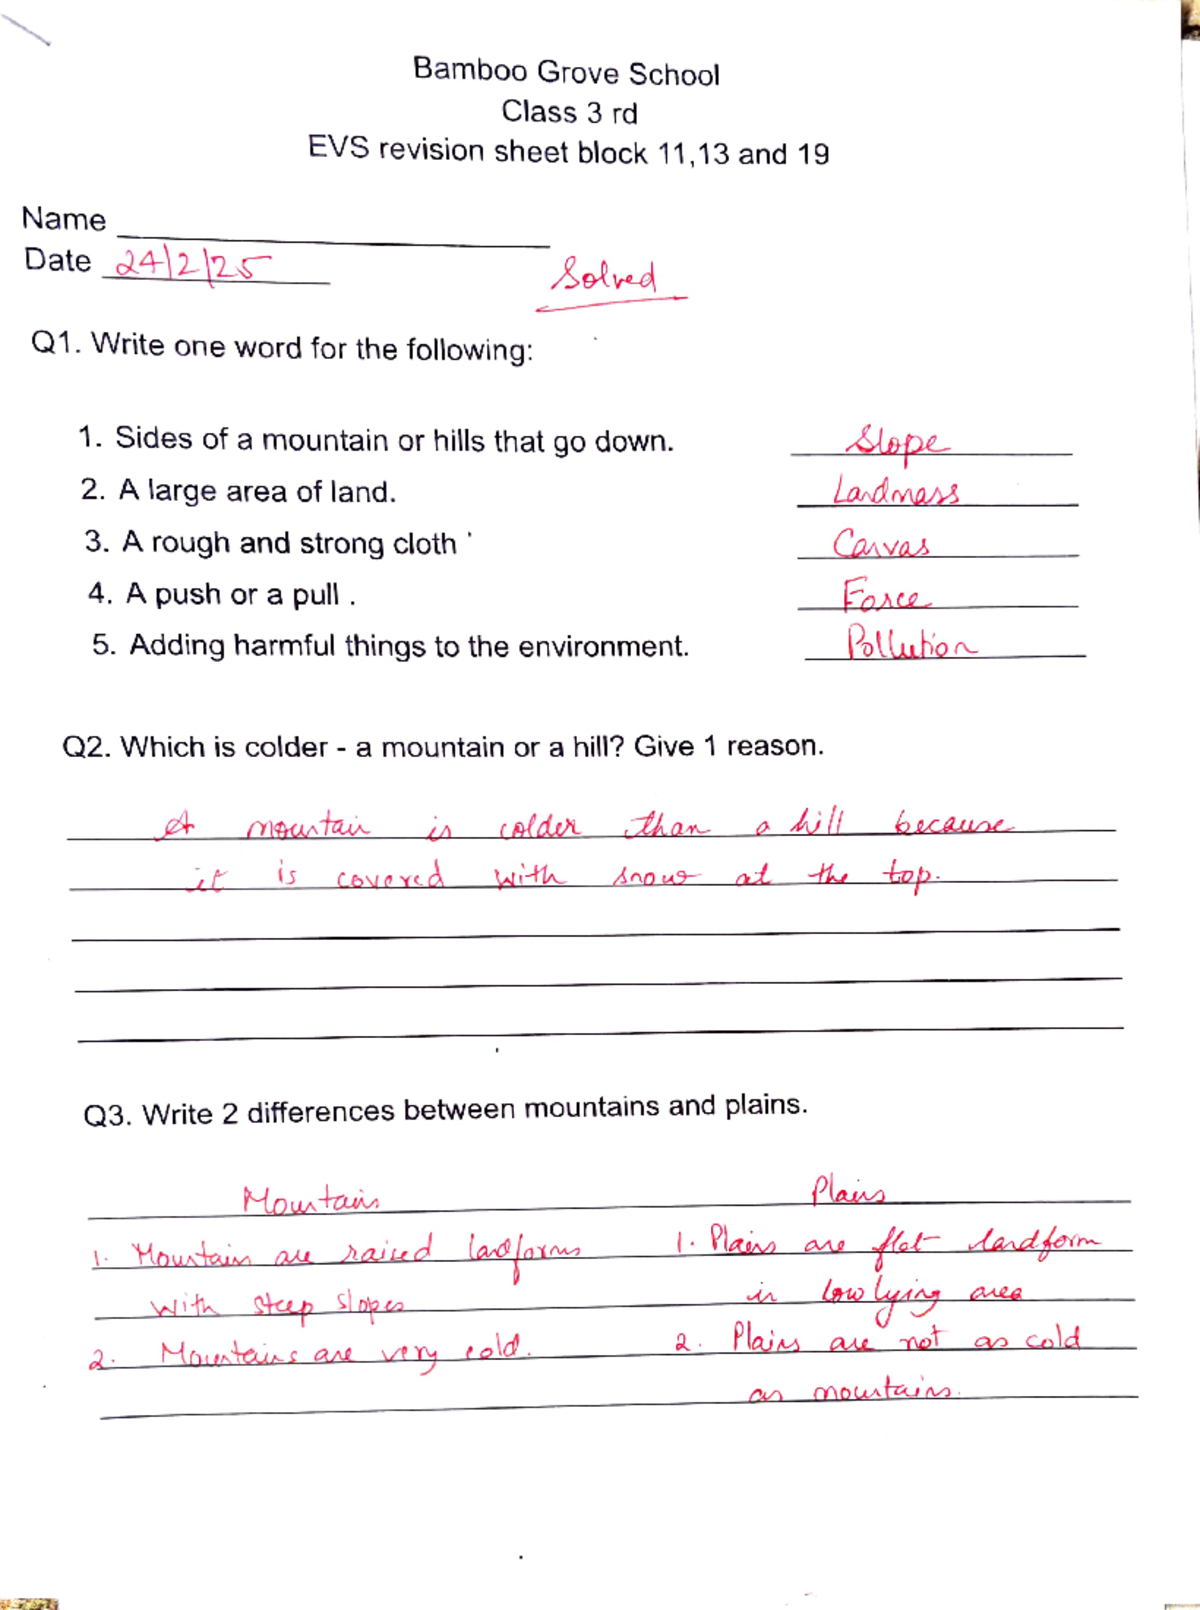 Bamboo Grove School
Class 3 rd
EVS revision sheet block 11,13 and 19
Name
Date 24/2/25
Solved
Q1. Write one word for the following:
1. Sides of a mountain or hills that go down. Slope
2. A large area of land. Landmass
3. A rough and strong cloth Canvas
4. A push or a pull . Force
5. Adding harmful things to the environment. Pollution
Q2. Which is colder - a mountain or a hill? Give 1 reason.
A mountain is colder than a hill because
it is covered with snow at the top.
Q3. Write 2 differences between mountains and plains.
Mountain Plains
1. Mountain are raised landforms 1. Plains are flat landform
with steep slopes in low lying area
2. Mountains are very cold. 2. Plains are not as cold
as mountains.